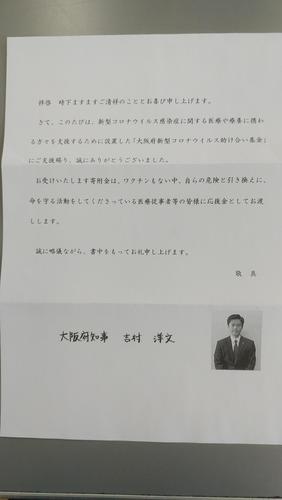 拝啓　時下ますますご清祥のこととお喜び申し上げます。
さて、このたびは、新型コロナウイルス感染症に関する医療や療養に携わ
る方々を支援するために設置した「大阪府新型コロナウイルス助け合い基金」
にご支援賜り、誠にありがとうございました。
お受けいたします寄附金は、ワクチンもない中、自らの危険と引き換えに、
命を守る活動をしてくださっている医療従事者等の皆様に応援金としてお渡
しします。
誠に略儀ながら、書中をもってお礼申し上げます。
敬　具
大阪府知事　吉村　洋文